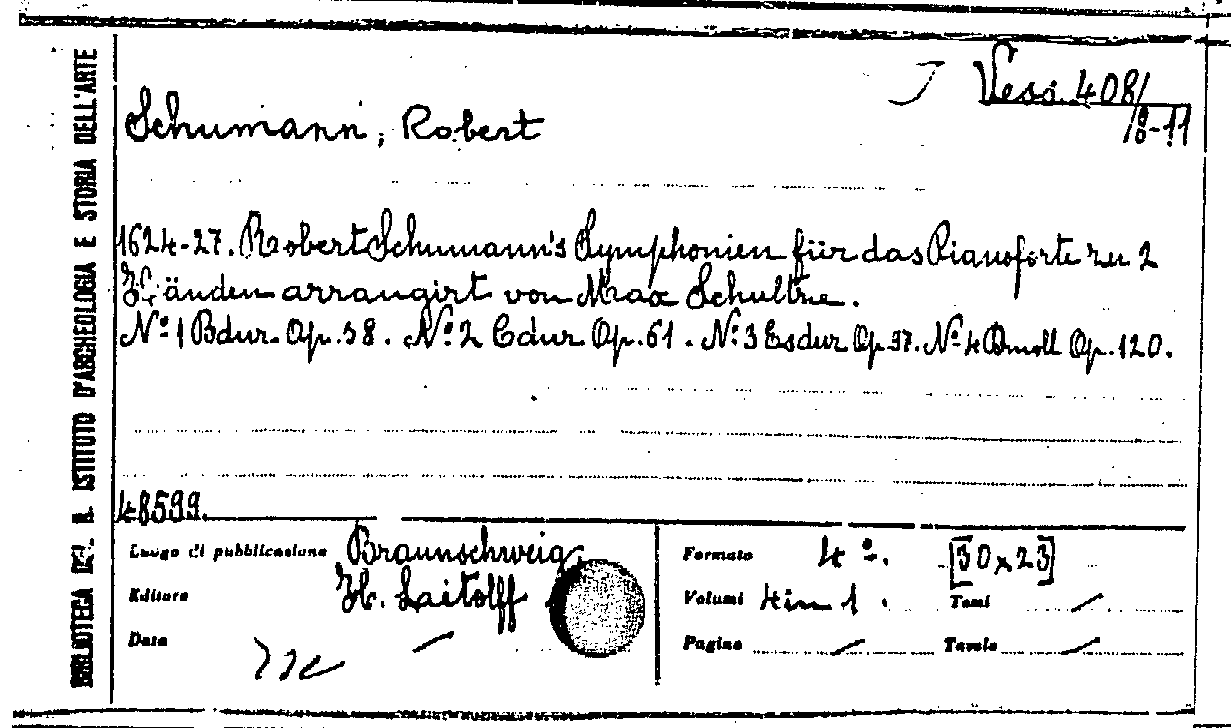 BIBLIOTECA DEL R. ISTITUTO D'ARCHEOLOGIA E STORIA DELL'ARTE
Vesa. 408/
/8-11
Schumann, Robert
1624-27. Robert Schumann's Symphonien für das Pianoforte zu 2
Händen arrangirt von Max Schultze.
Nº 1 Bdur. Op. 38. Nº 2 Cdur Op. 61. Nº 3 Esdur Op 97. Nº 4 Dmoll Op. 120.
48599.
Luogo di pubblicazione Braunschweig
Editore H. Laitolff
Data —
Formato 4º. [30x23]
Volumi 4 in 1. Tomi /
Pagine / Tavole /